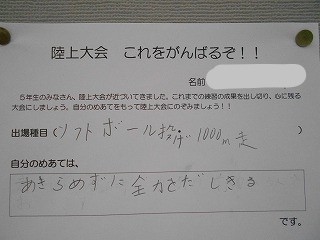 陸上大会　これをがんばるぞ！！
名前
５年生のみなさん、陸上大会が近づいてきました。これまでの練習の成果を出し切り、心に残る
大会にしましょう。自分のめあてをもって陸上大会にのぞみましょう！！
出場種目（ソフトボール投げ 1000m走）
自分のめあては、
あきらめずに全力をだしきる
です。